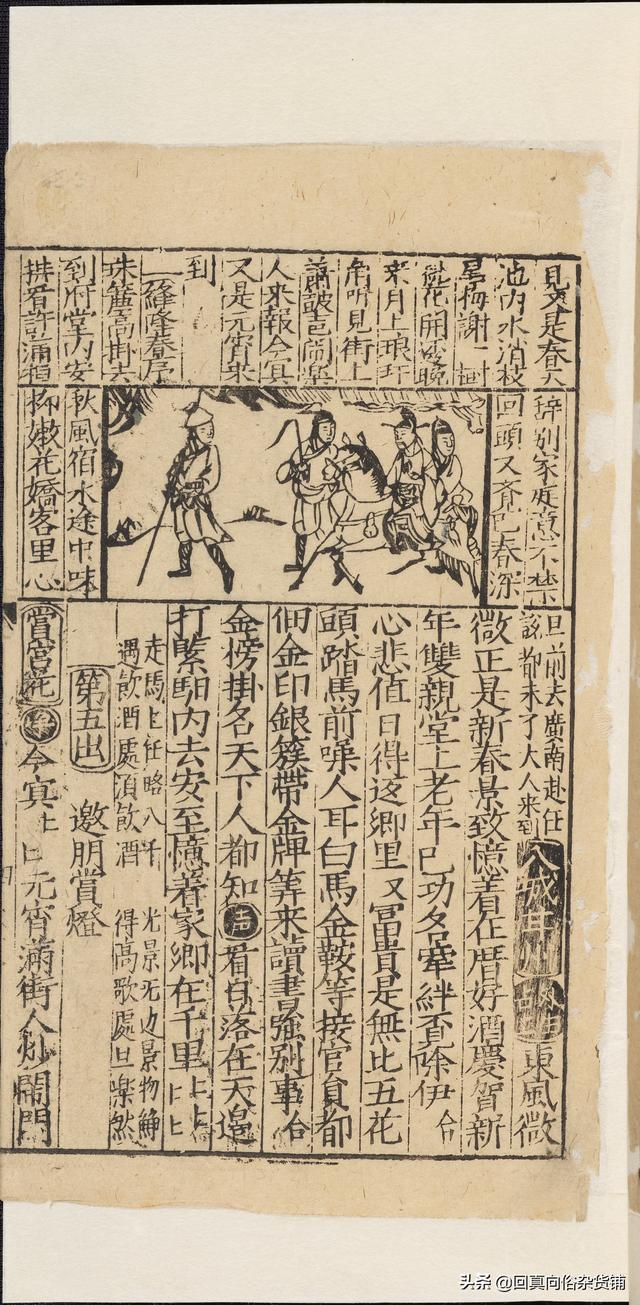 見又是春天
池内水消枝
梅謝一樹
花開晚
來月上琅玕
角听見街上
皷邑閙
人來報今冥
又是元宵來
到
隆春序
珠簾高掛去
到府堂内安
排看許滿
辞别家庭意不禁
回頭又春深
秋風宿水途中味
柳嫩花嬌客里心
旦前去廣南赴任
該都來了大人来到
入城 東風微
微正是新春景致憶着在厝好酒慶賀新
年雙親堂上老年已功名牽絆覔除伊合
心悲值日得返鄉里又富貴是無比五花
頭踏馬前噪人耳白馬金鞍等接官負都
佃金印銀簇帶金牌等來讀書别事合
金榜掛名天下人都知声看日落在天邉
打緊馹内去安至憶着家卿在千里
走馬上任略八千 光景无边景物静
遇飲酒處須飲酒 得高歌處且樂然
第五出
邀朋賞燈
賞宮花 今冥 元宵滿街人炒閙門
头条 @回真向俗杂货铺